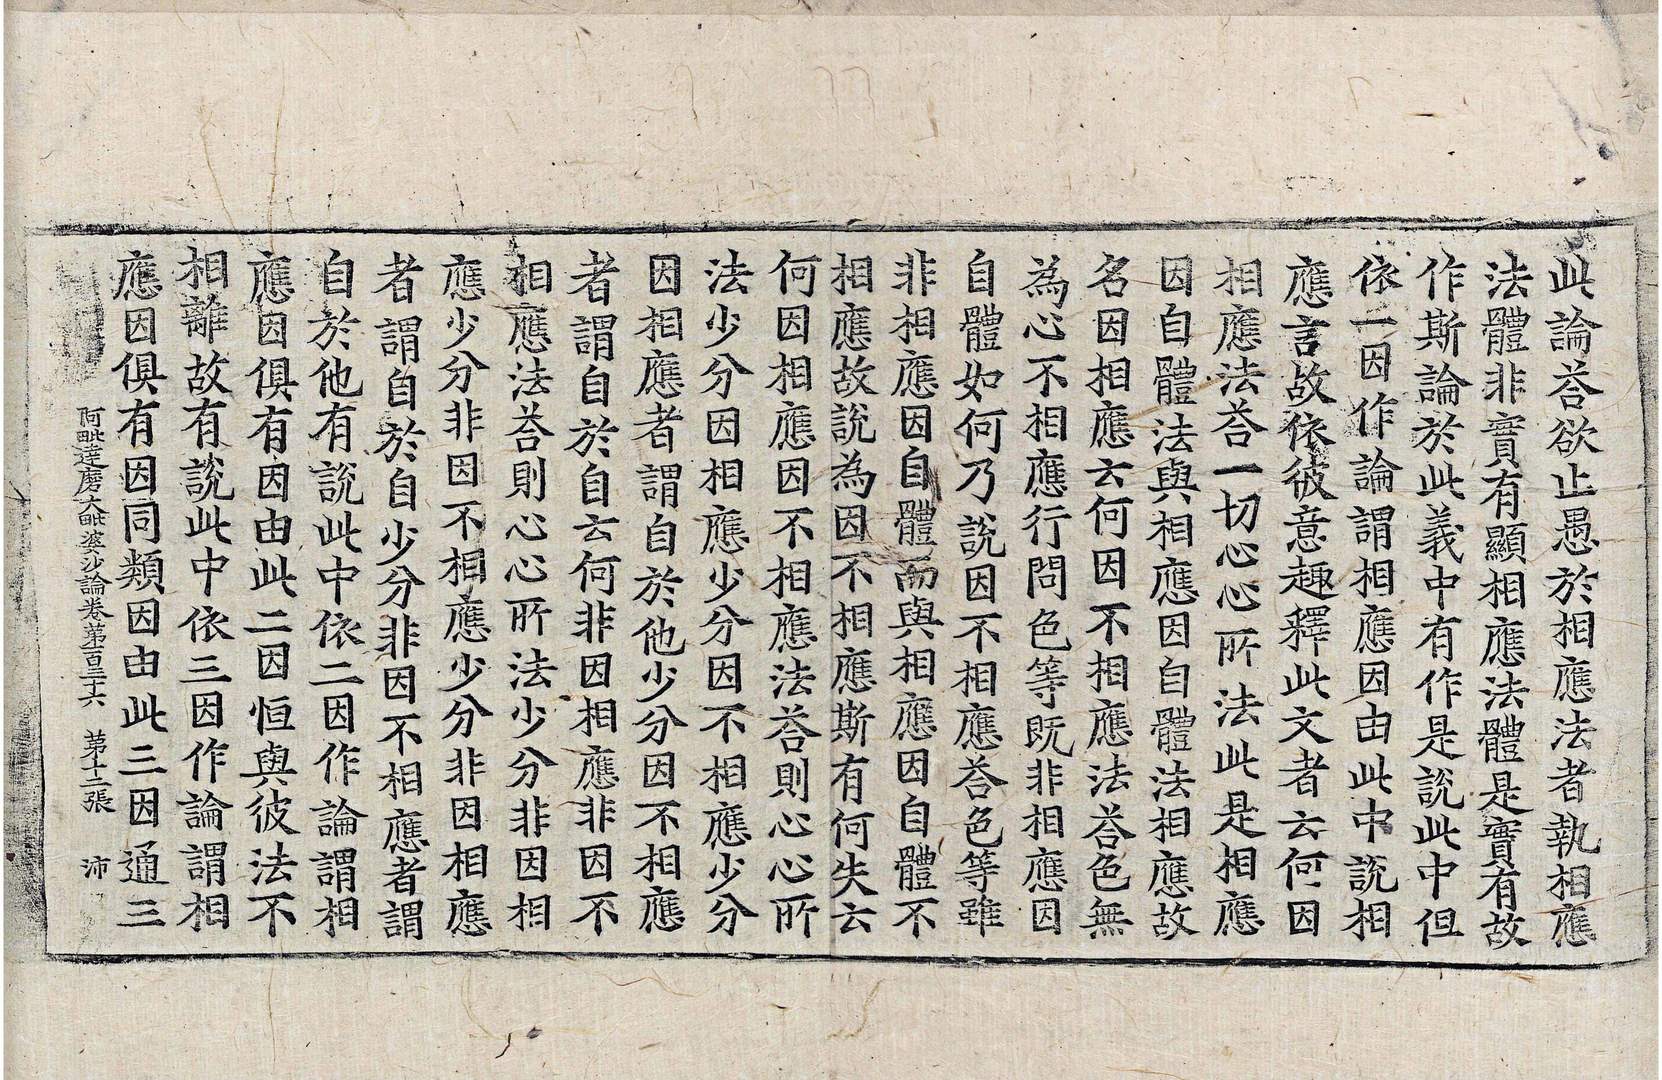 此論荅欲止愚於相應法者執相應
法體非實有顯相應法體是實有故
作斯論於此義中有作是說此中但
依一因作論謂相應因由此中說相
應言故依彼意趣釋此文者云何因
相應法荅一切心心所法此是相應
因自體法與相應因自體法相應故
名因相應云何因不相應法荅色無
為心不相應行問色等既非相應因
自體如何乃說因不相應荅色等雖
非相應因自體而與相應因自體不
相應故說為因不相應斯有何失云
何因相應因不相應法荅則心心所
法少分因相應少分因不相應少分
因相應者謂自於他少分因不相應
者謂自於自云何非因相應非因不
相應法荅則心心所法少分非因相
應少分非因不相應少分非因相應
者謂自於自少分非因不相應者謂
自於他有說此中依二因作論謂相
應因俱有因由此二因恒與彼法不
相離故有說此中依三因作論謂相
應因俱有因同類因由此三因通三
阿毗達磨大毗婆沙論卷第百三十六 第十二張 沛